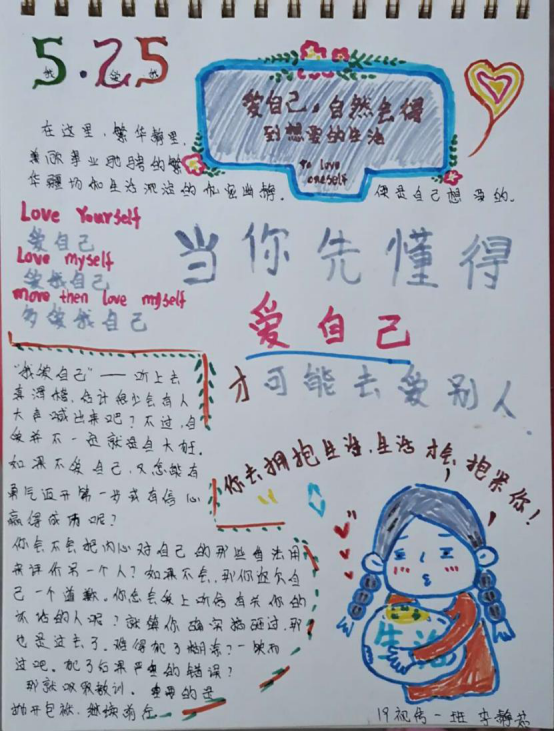 5.25
我爱我
爱自己，自然会得
到想要的生活
To love
oneself
在这里，繁华
美丽事业
华 生活
便是自己想要的。
Love Yourself
爱自己
Love myself
爱我自己
more then love myself
多爱我自己
当你先懂得
爱自己
才可能去爱别人
你去拥抱生活，生活才会抱紧你！
"我爱自己"——听上去
真滑稽，估计很少会有人
大声喊出来吧？不过，自
爱并不一定就是自大狂。
如果不爱自己，又怎能有
勇气迈开第一步或有信心
赢得成 呢？
你会不会把内心对自己的那些看法用
来评价另一个人？如果不会，那你 欠自
己一个道歉。你怎会爱上听 有关你的
坏话的人呢？就算你确实搞砸过，那
也是过去了。难得犯了糊涂？一 而
过吧。犯了后果严重的错误？
那就吸取教训。重要的是
抛开包袱，继续前行
生活
19视传一班 李静